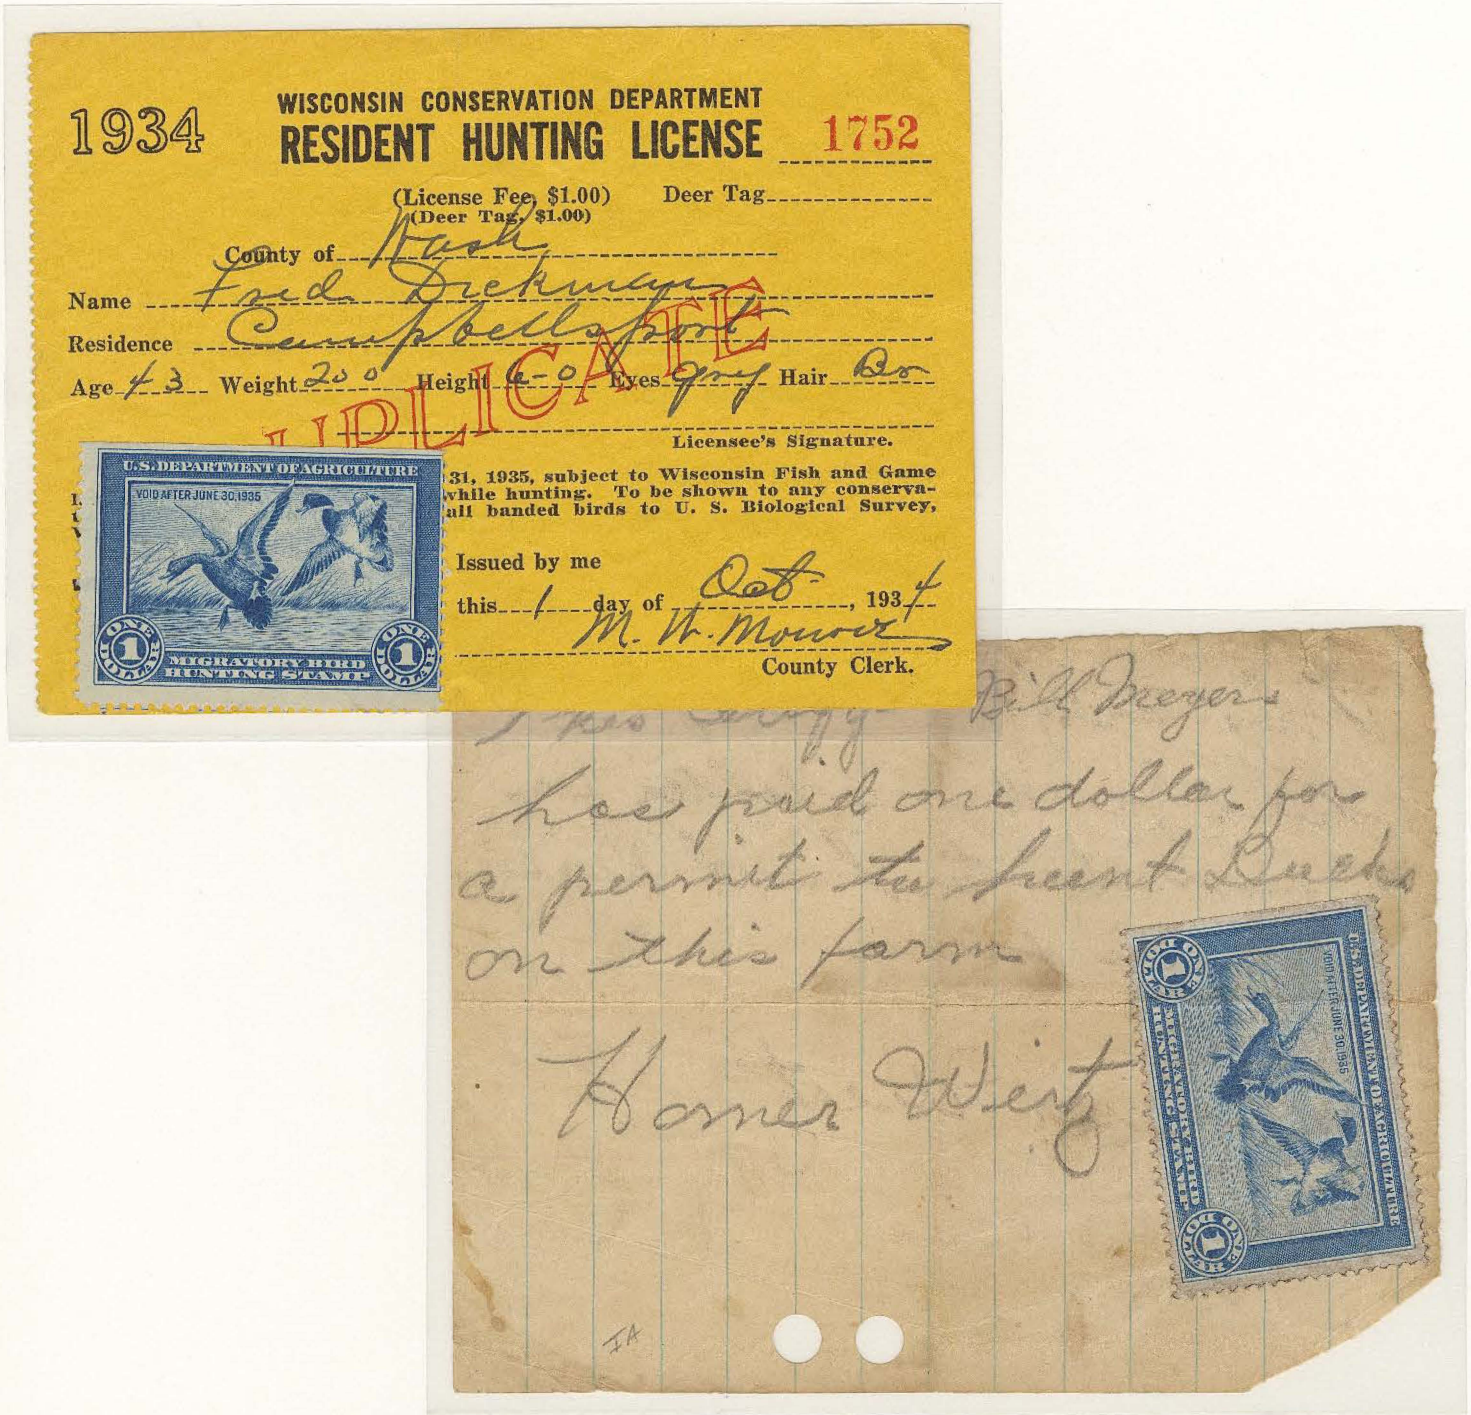 1934
WISCONSIN CONSERVATION DEPARTMENT
RESIDENT HUNTING LICENSE
1752
(License Fee, $1.00) Deer Tag
(Deer Tag, $1.00)
County of Wash
Name Fred Dickman
Residence Campbellsport
Age 43 Weight 200 Height 6-0 Eyes grey Hair Br
UPLICATE
Licensee's Signature.
31, 1935, subject to Wisconsin Fish and Game
while hunting. To be shown to any conserva-
all banded birds to U. S. Biological Survey,
Issued by me
this 1 day of Oct, 1934
M. W. Monroe
County Clerk.
U.S. DEPARTMENT OF AGRICULTURE
VOID AFTER JUNE 30, 1935
ONE DOLLAR
1
MIGRATORY BIRD
HUNTING STAMP
ONE DOLLAR
1
Bill Meyers
has paid one dollar for
a permit to hunt Ducks
on this farm
Homer Wertz
IA
U.S. DEPARTMENT OF AGRICULTURE
VOID AFTER JUNE 30, 1935
ONE DOLLAR
1
MIGRATORY BIRD
HUNTING STAMP
ONE DOLLAR
1